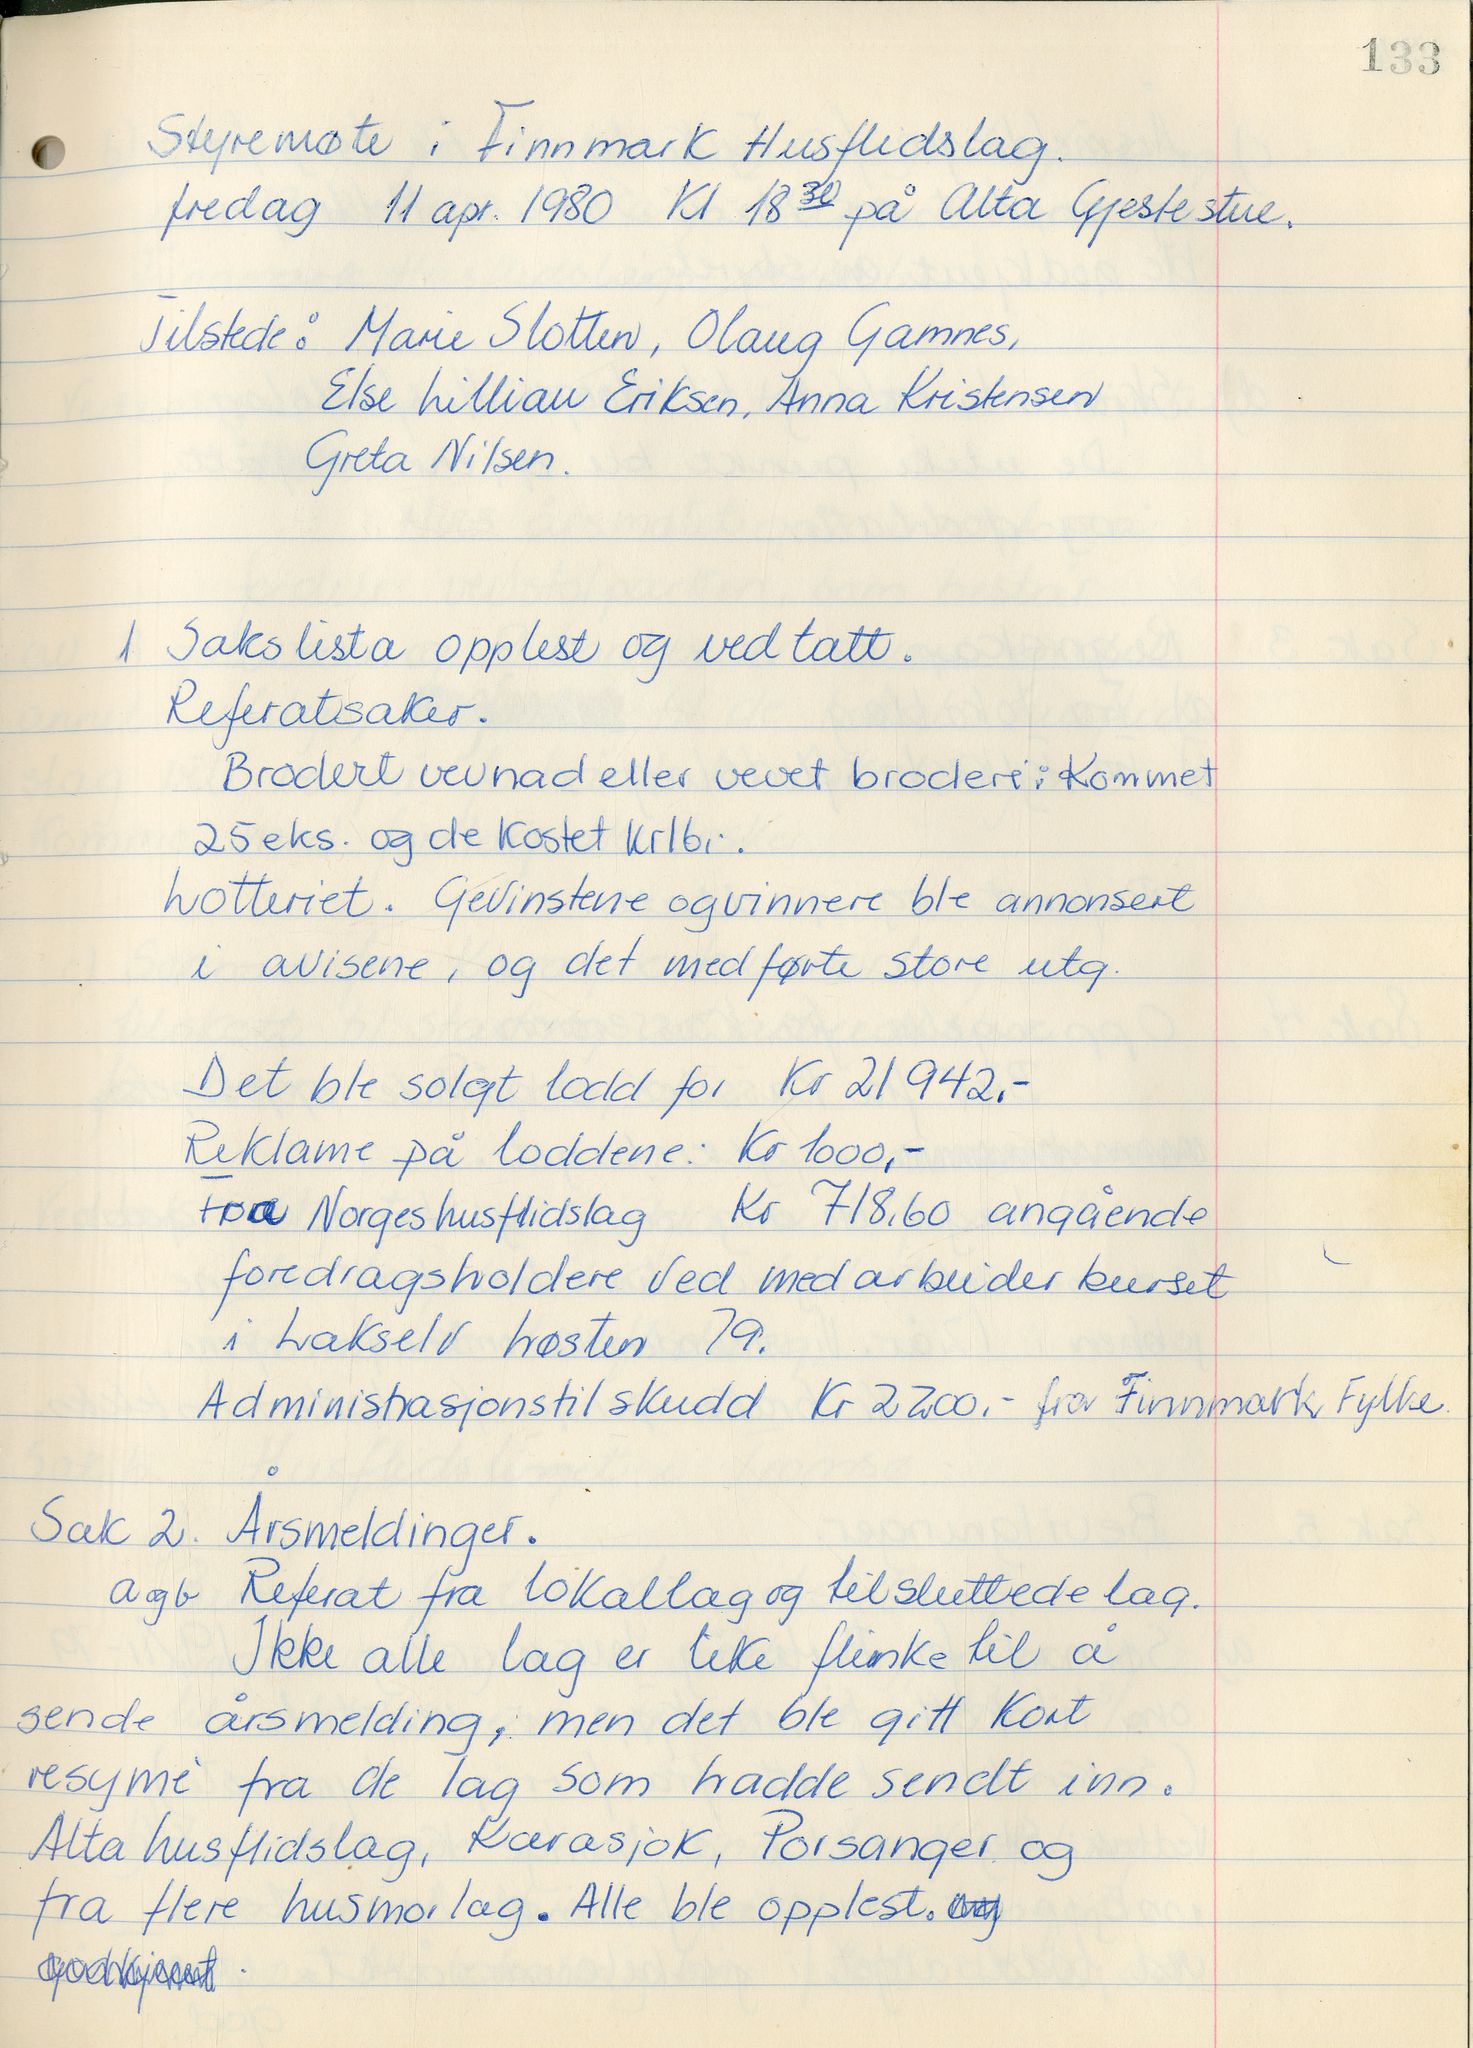 133
Styremøte i Finnmark Husflidslag.
fredag 11 apr. 1980 Kl 18 30 på Alta Gjestestue.
Tilstede: Marie Slotten, Olaug Gamnes,
Else Lillian Eriksen, Anna Kristensen
Greta Nilsen.
1 Sakslista opplest og vedtatt.
Referatsaker.
Brodert vevnad eller vevet broderi: Kommet
25 eks. og de kostet kr 16,-.
Lotteriet. Gevinstene og vinnere ble annonsert
i avisene, og det medførte store utg.
Det ble solgt lodd for Kr 21 942,-
Reklame på loddene: Kr 1000,-
Fra Norges husflidslag Kr 718,60 angående
foredragsholdere ved medarbeider kurset
i Lakselv høsten 79.
Administrasjonstilskudd Kr 2200.- fra Finnmark Fylke.
Sak 2. Årsmeldinger.
a og b Referat fra lokallag og tilsluttede lag.
Ikke alle lag er like flinke til å
sende årsmelding, men det ble gitt kort
resymé fra de lag som hadde sendt inn.
Alta husflidslag, Karasjok, Porsanger og
fra flere husmorlag. Alle ble opplest. og
godkjent.